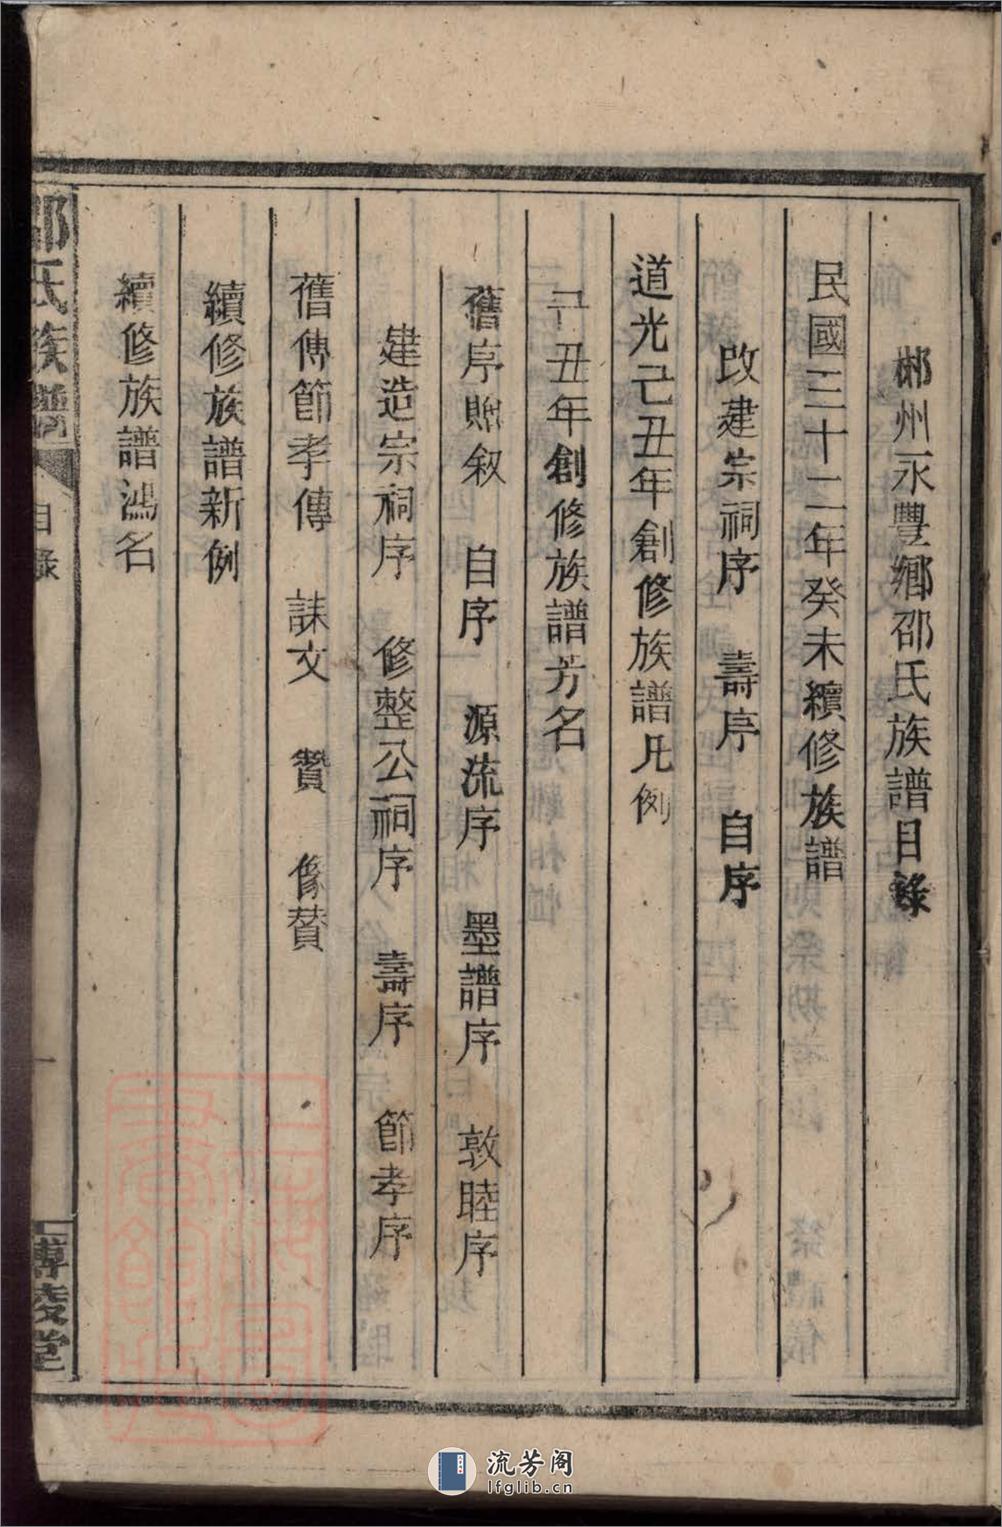 郴州永豐鄉邵氏族譜目錄
民國三十二年癸未續修族譜
改建宗祠序 壽序 自序
道光己丑年創修族譜凡例
己丑年創修族譜芳名
舊序贈叙 自序 源流序 墨譜序 敦睦序
建造宗祠序 修整公祠序 壽序 節孝序
舊傳節孝傳 誄文 贊 像贊
續修族譜新例
續修族譜鴻名
邵氏族譜 目錄 一 博陵堂
流芳阁
lfglib.cn